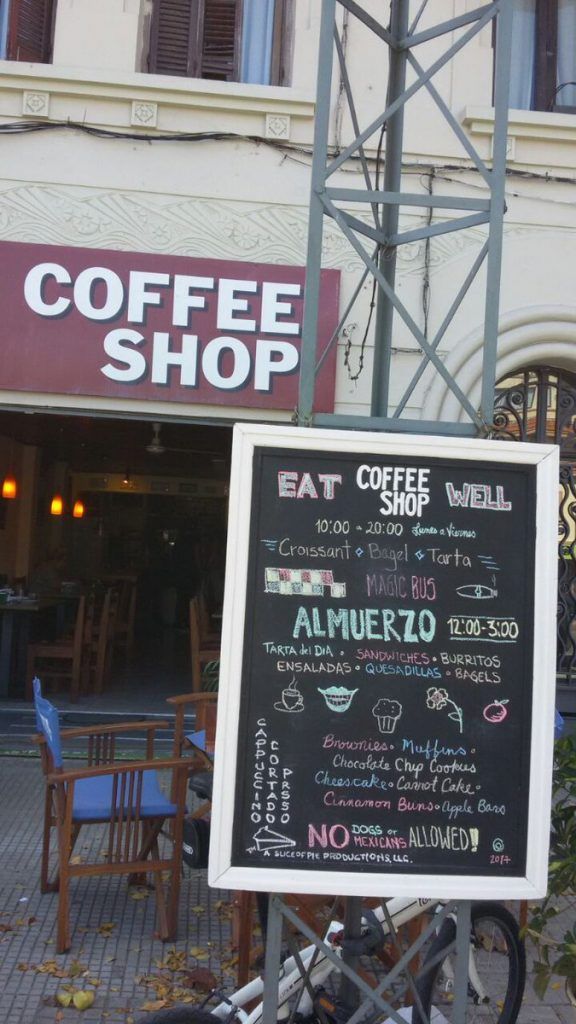 COFFEE
SHOP
EAT COFFEE SHOP WELL
10:00 a 20:00 Lunes a Viernes
Croissant Bagel Tarta
MAGIC BUS
ALMUERZO 12:00-3:00
TARTA del DIA • SANDWICHES • BURRITOS
ENSALADAS • QUESADILLAS • BAGELS
Brownies • Muffins •
Chocolate Chip Cookies
Cheesecake • Carrot Cake •
Cinnamon Buns • Apple Bars
CAPPUCCINO
CORTADO
PRSSO
NO DOGS or MEXICANS ALLOWED!
A SLICEOFPIE PRODUCTIONS, LLC.
2017